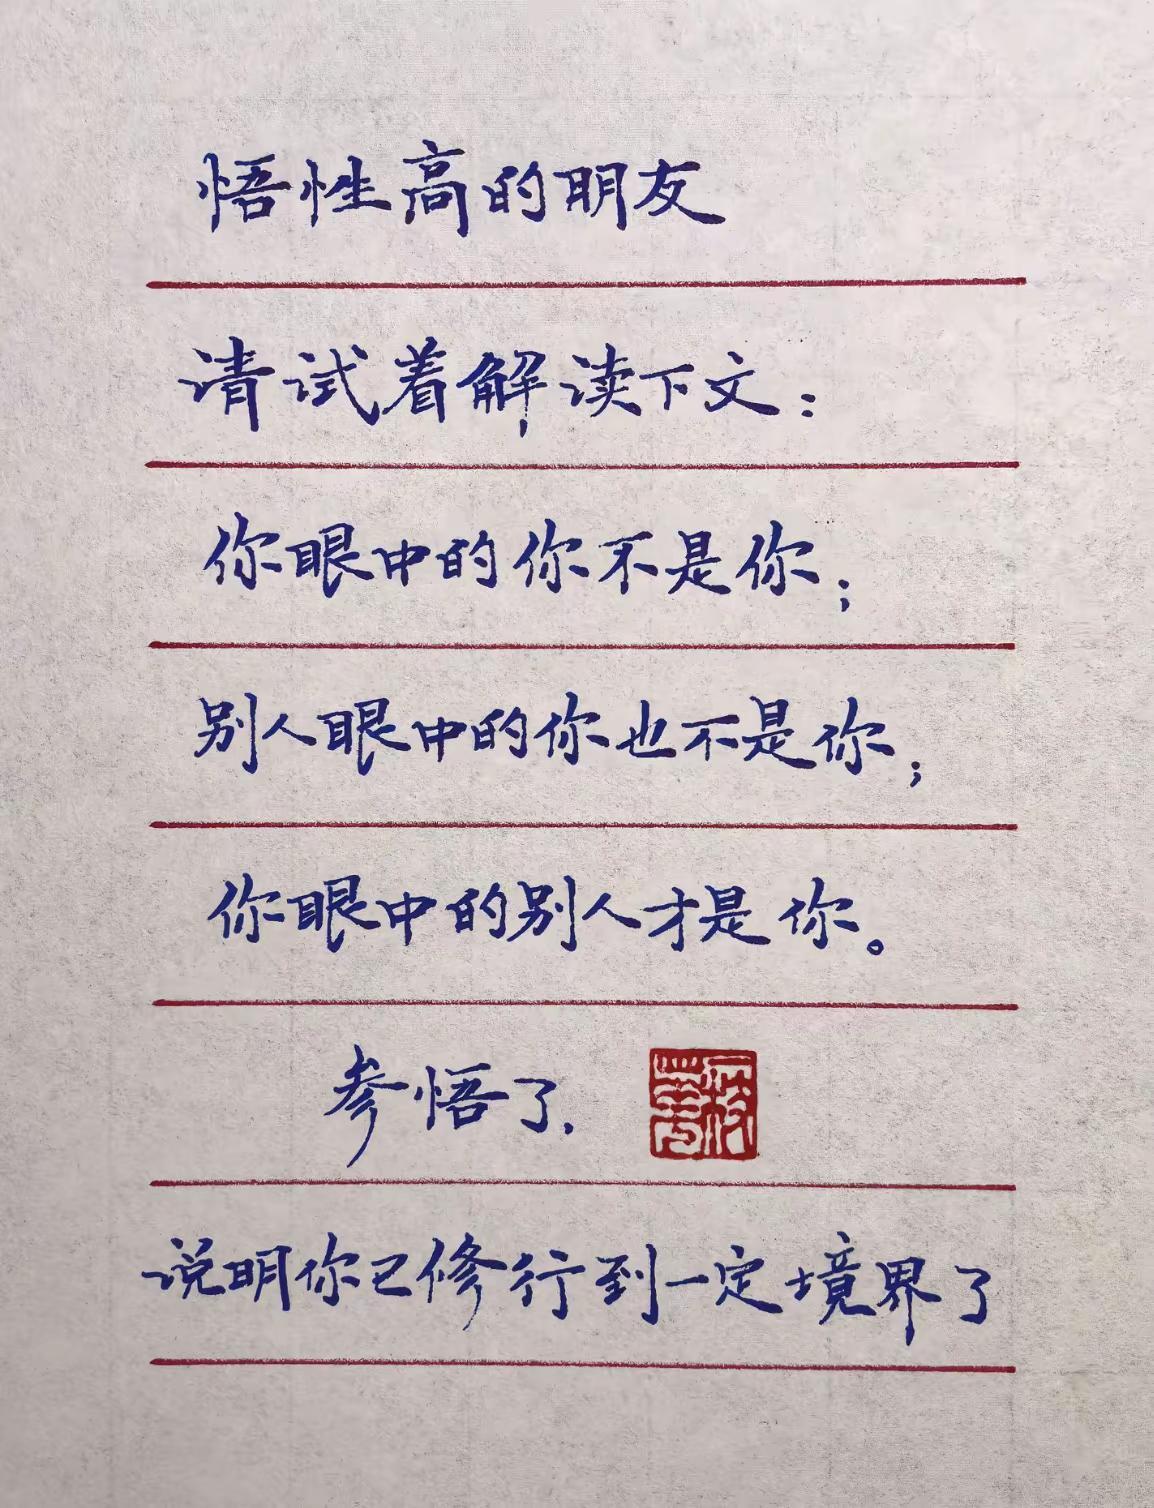 悟性高的朋友
请试着解读下文：
你眼中的你不是你；
别人眼中的你也不是你；
你眼中的别人才是你。
参悟了.
说明你已修行到一定境界了